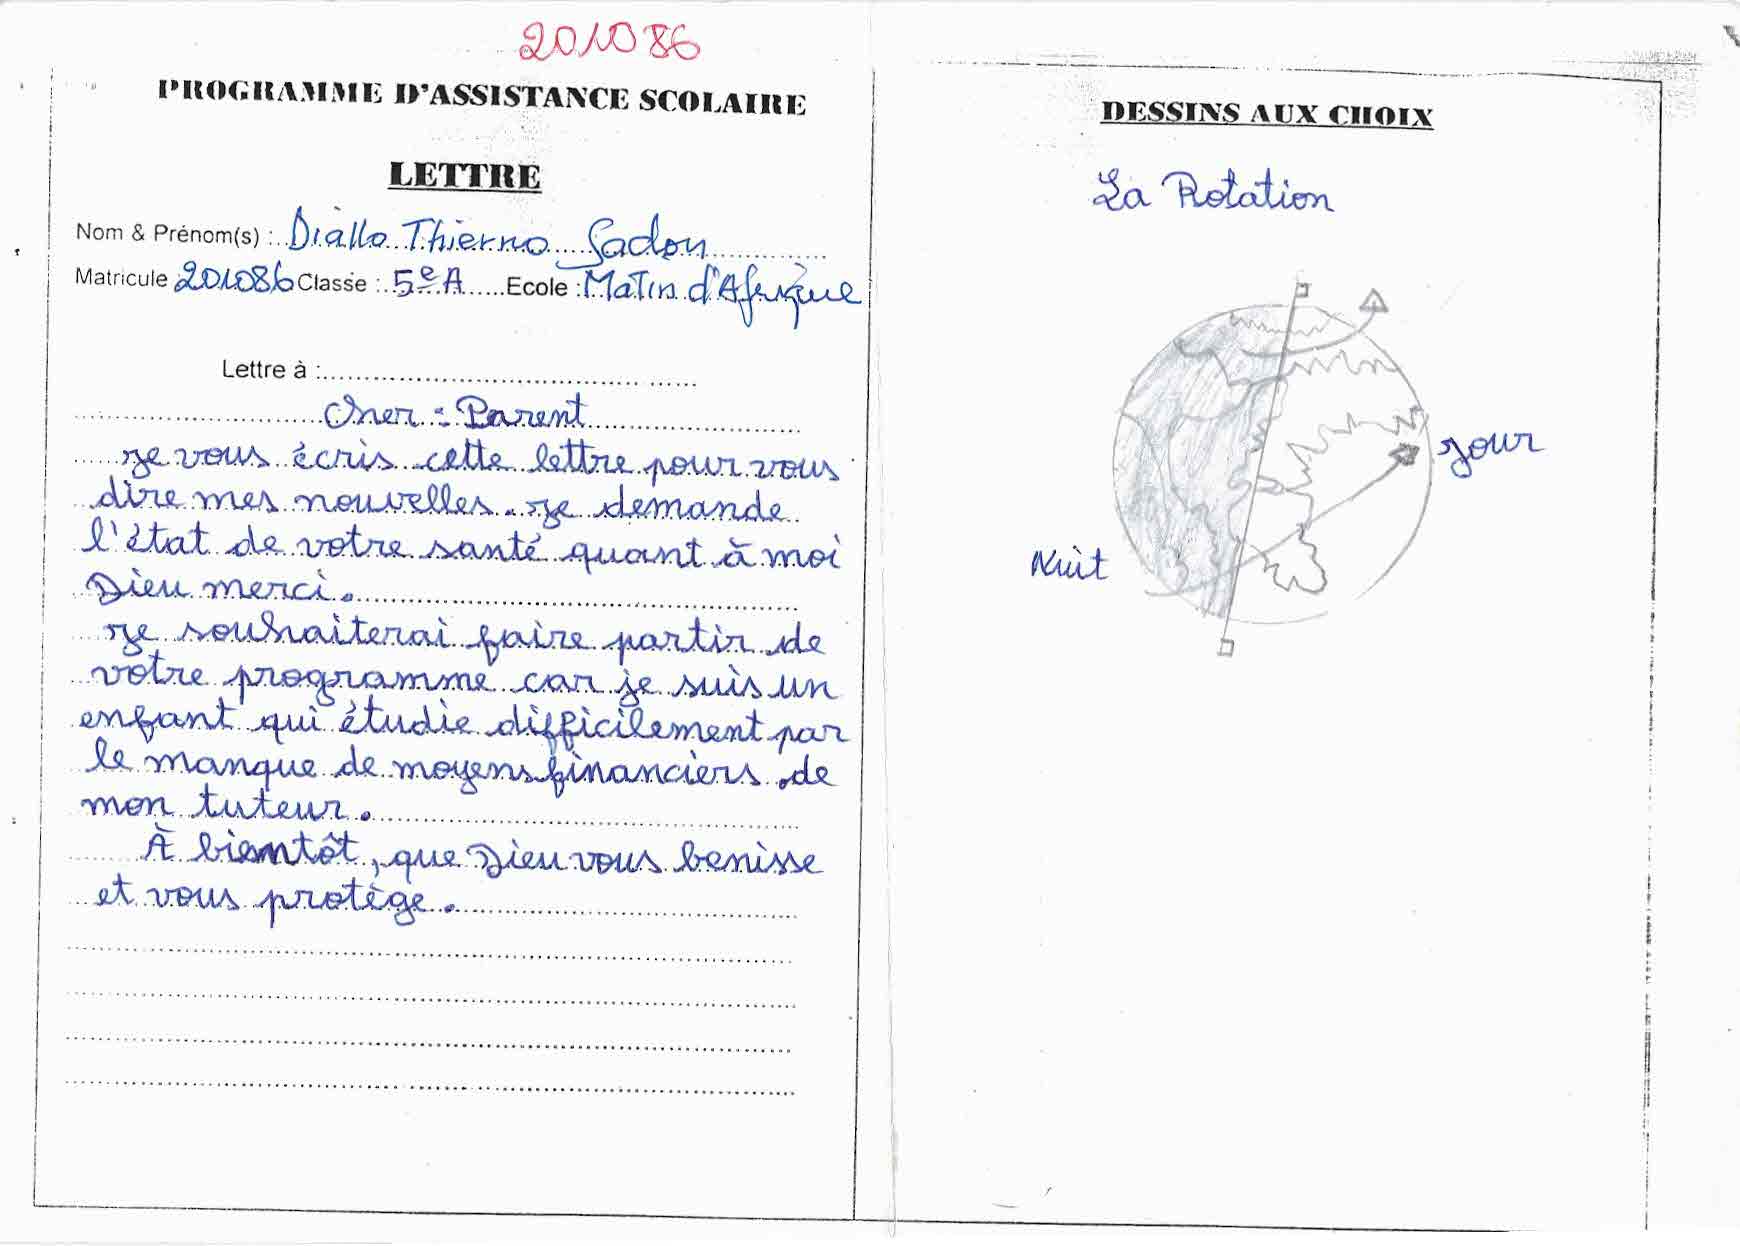 201086
PROGRAMME D'ASSISTANCE SCOLAIRE
LETTRE
Nom & Prénom(s) : Diallo Thierno Sadou
Matricule 201086 Classe : 5e A Ecole : Matin d'Afrique
Lettre à :
Cher : Parent
Je vous écris cette lettre pour vous
dire mes nouvelles. Je demande
l'état de votre santé quant à moi
Dieu merci.
Je souhaiterai faire partir de
votre programme car je suis un
enfant qui étudie difficilement par
le manque de moyens financiers de
mon tuteur.
À bientôt, que Dieu vous benisse
et vous protège.
DESSINS AUX CHOIX
La Rotation
Jour
Nuit